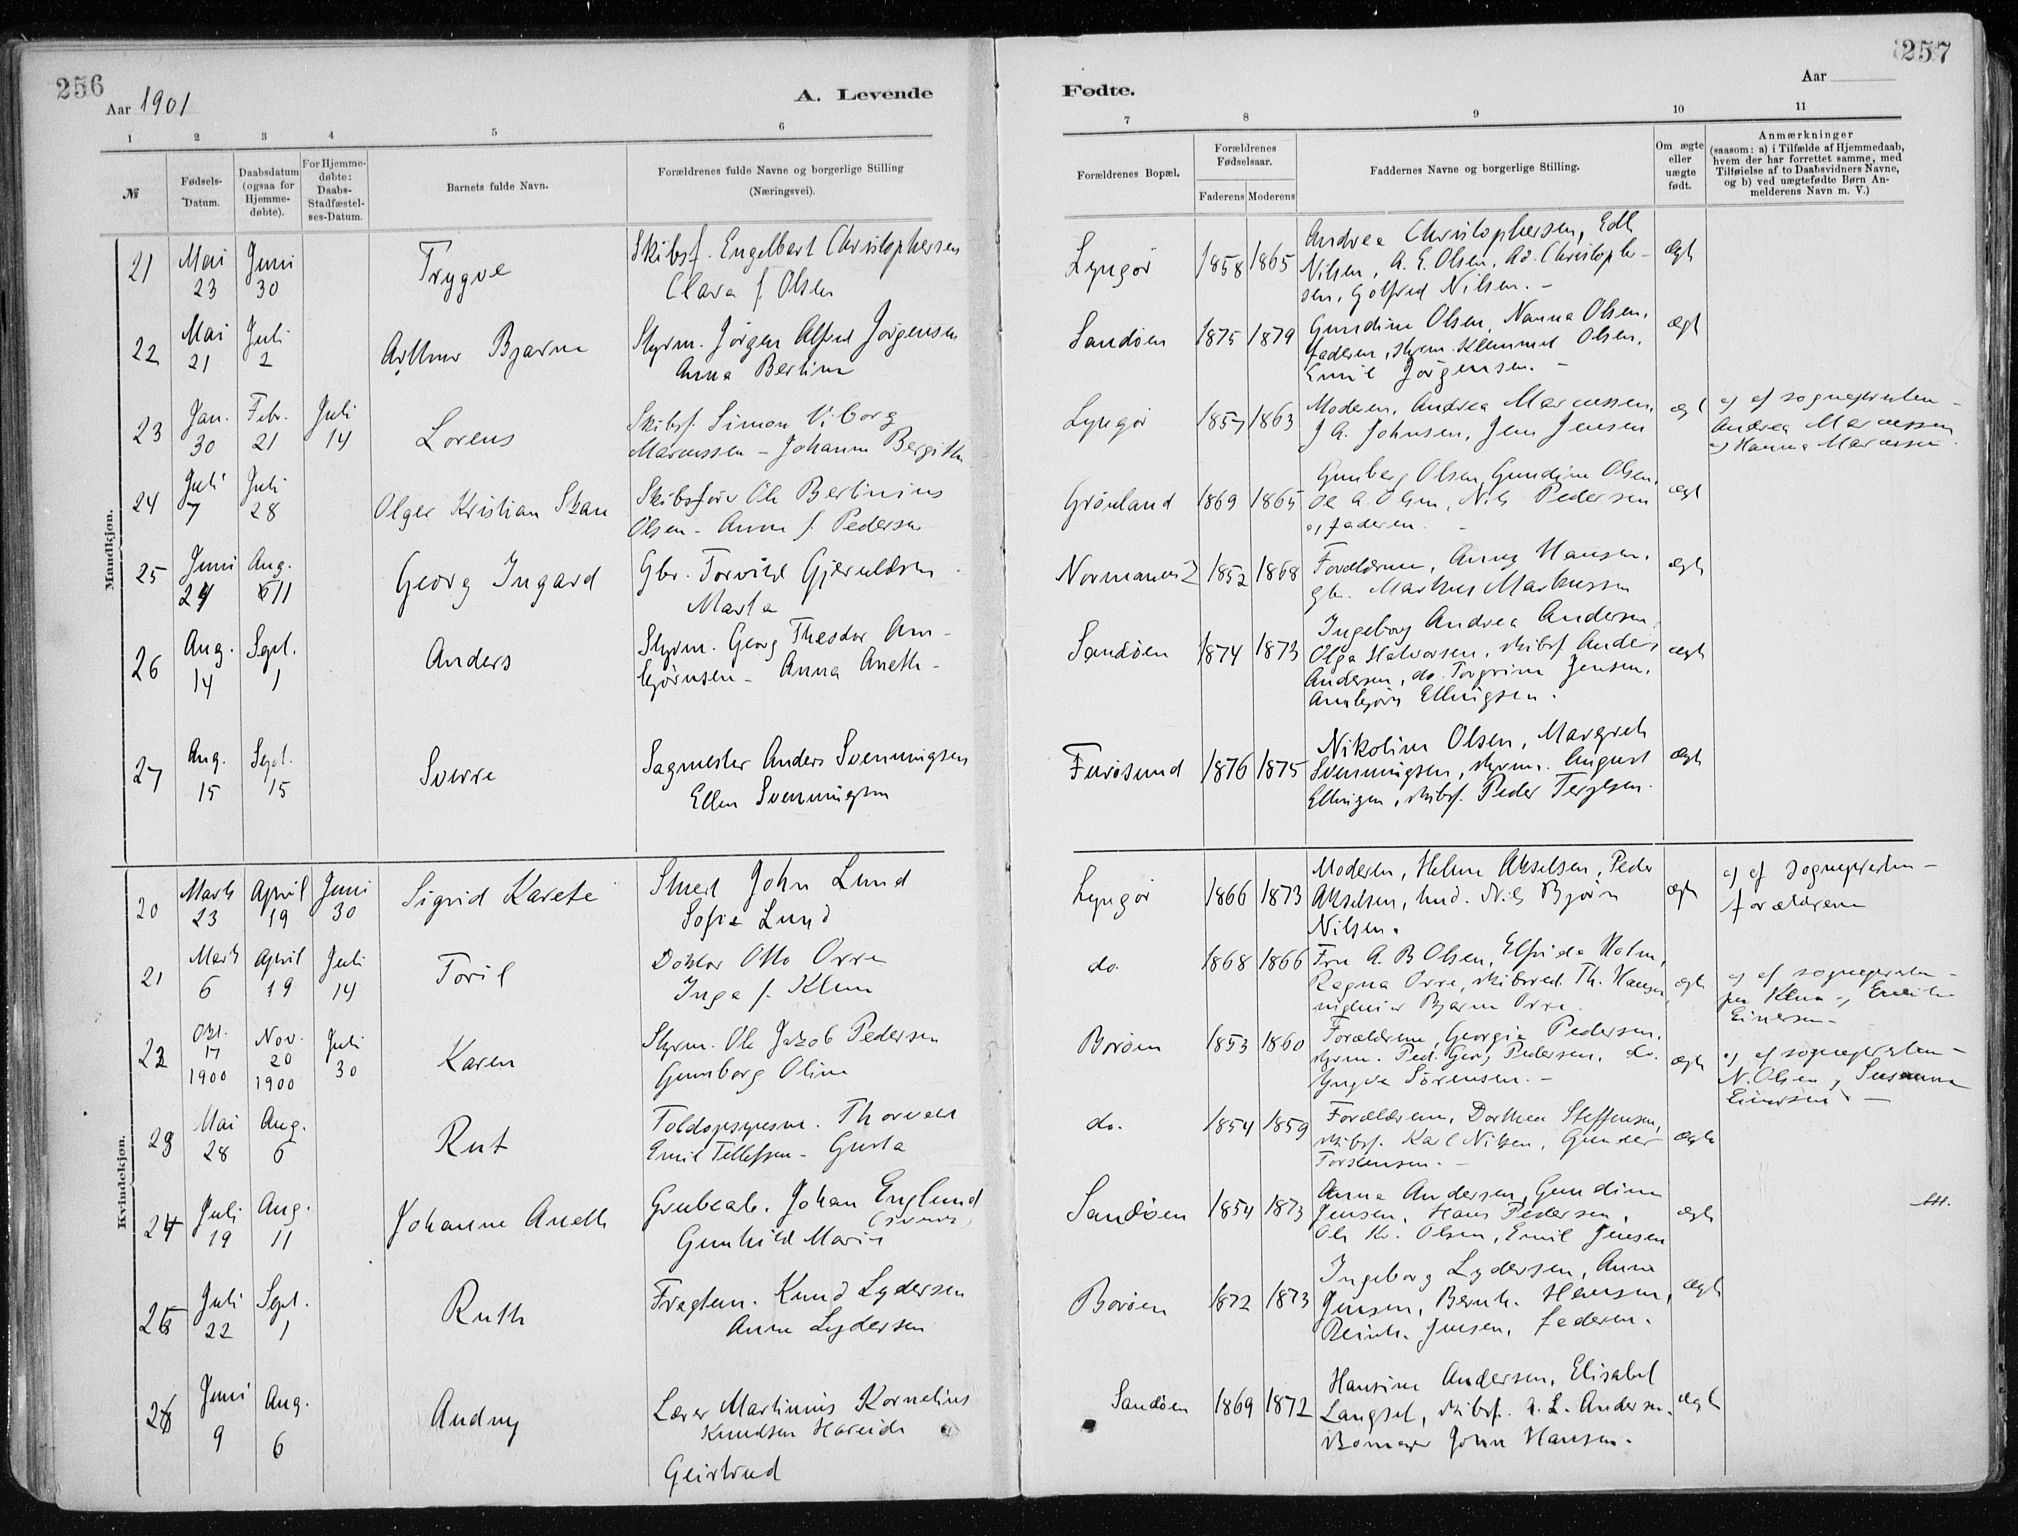 256
Aar 1901
A. Levende
1 2 3 4 5 6
№
Fødsels-Datum.
Daabsdatum (ogsaa for Hjemme-døbte).
For Hjemme-døbte: Daabs-Stadfæstel-ses-Datum.
Barnets fulde Navn.
Forældrenes fulde Navne og borgerlige Stilling
(Næringsvei).
Mandkjøn.
21 Mai 23 Juni 30 Trygve
Skibsf. Engelbart Christophersen
Clara f. Olsen
22 Mai 21 Juli 2 Arthur Bjarne
Styrm. Jørgen Alfred Jørgensen
Anna Bertine
23 Jan. 30 Febr. 21 Juli 14 Lorens
Skibsf. Simon Viborg
Marcussen - Johanne Bergithe
24 Juli 7 Juli 28 Olger Kristian
Skibsfører Ole Bertinius
Olsen - Anne f. Pedersen
25 Juni Aug. 11 Georg Ingard
Gbr. Torvild Gjeruldsen
Marta
26 Aug. 14 Sept. 1 Anders
Styrm. Georg Theodor Arn-
bjørnsen - Anna Aneth -
27 Aug. 15 Sept. 15 Sverre
Sagmester Anders Svenningsen
Ellen Svenningsen
Kvindekjøn.
20 Marts 23 April 19 Juni 30 Sigrid Karete
John Lund
Sofie Lund
21 Marts 6 April 19 Juli 14 Toril
Doktor Otto Orre
Inga f. Klem
22 Okt. 17 1900 Nov. 20 1900 Juli 30 Karen
Styrm. Ole Jakob Pedersen
Gunborg Oline
23 Mai 28 Aug. 6 Rut
Toldopsynsm. Thorvald
Emil Tellefsen - Gusta
24 Juli 19 Aug. 11 Johanne Aneth
Grubearb. Johan Englund
Gunhild Marie
25 Juli 22 Sept. 1 Ruth
Fragtem. Knud Lydersen
Anne Lydersen
26 Juni 9 Aug. 6 Audny
Lærer Martinius Kornelius
Knudsen Hareide
Geirtrud
257
Fødte.
Aar
7 8 9 10 11
Forældrenes Bopæl.
Forældrenes Fødselsaar.
Faderens Moderens
Faddernes Navne og borgerlige Stilling.
Om ægte eller uægte født.
Anmærkninger
(saasom: a) i Tilfælde af Hjemmedaab,
hvem der har forrettet samme, med
Tilføielse af to Daabsvidners Navne,
og b) ved uægtefødte Børn An-
melderens Navn m. V.)
Lyngør 1858 1865
Andrea Christophersen, Edle
Nilsen, A. E. Olsen, Ad. Christopher-
sen, Golfred Nilsen. -
ægt
Sandøen 1875 1879
Gundine Olsen, Nanna Olsen,
Faderen, styrm. Klemmet Olsen,
Emil Jørgensen. -
ægt
Lyngør 1857 1863
Moderen, Andrea Marcussen,
J A. Johnsen, Jens Jensen
ægt
a) af sognepresten -
Andrea Marcussen
og Hanna Marcussen
Grønland 1869 1865
Gunborg Olsen, Gundine Olsen,
Ole A. Olsen, Nils Pedersen
og faderen.
ægt
1852 1868
Forældrene, Anny Hansen,
gbr. Markus Markussen
ægt
Sandøen 1874 1873
Ingeborg Andrea Andersen,
Olga Halvorsen, skibsf. Anders
Andersen, do. Torgrim Jensen,
Arnbjørn Ellingsen.
ægt
Furøsund 1876 1875
Nikoline Olsen, Margreth
Svenningsen, styrm. August
Ellingsen, skibsf. Peder Terjesen.
ægt
Lyngør 1866 1873
Moderen, Helene Akselsen, Peder
Akselsen, Nils Bjørn
Nilsen.
ægt
a) af sognepresten -
forældrene
do. 1868 1866
Fru A. B Olsen, Elfrida Holm,
Ragna Orre, skibsred. Th. Hansen,
Bjarne Orre.
ægt
a) af sognepresten -
fru Klem og Emilie
Einersen -
Borøen 1853 1860
Forældrene, Georgia Pedersen,
styrm. Ped. Georg Pedersen, do.
Yngve Sørensen. -
ægt
a) af sognepresten -
N. Olsen og Susanne
do. 1854 1859
Forældrene, Dorthea Steffensen,
skibsf. Karl Nilsen, Gunder
Torstensen. -
ægte
Sandøen 1854 1873
Anna Andersen, Gundine
Jensen, Hans Pedersen,
Ole Kr. Olsen, Emil Jensen
ægt
Borøen 1872 1873
Ingeborg Lydersen, Anne
Jensen, Bernh. Hansen,
Reinh. Jensen, faderen.
ægt
Sandøen 1869 1872
Hansine Andersen, Elisabet
Langset, skibsf. A. L. Andersen,
John Hansen.
ægt